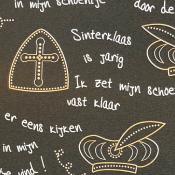 in mijn schoentje
door de
Sinterklaas
is jarig
Ik zet mijn schoe
vast klaar
er eens kijken
in mijn